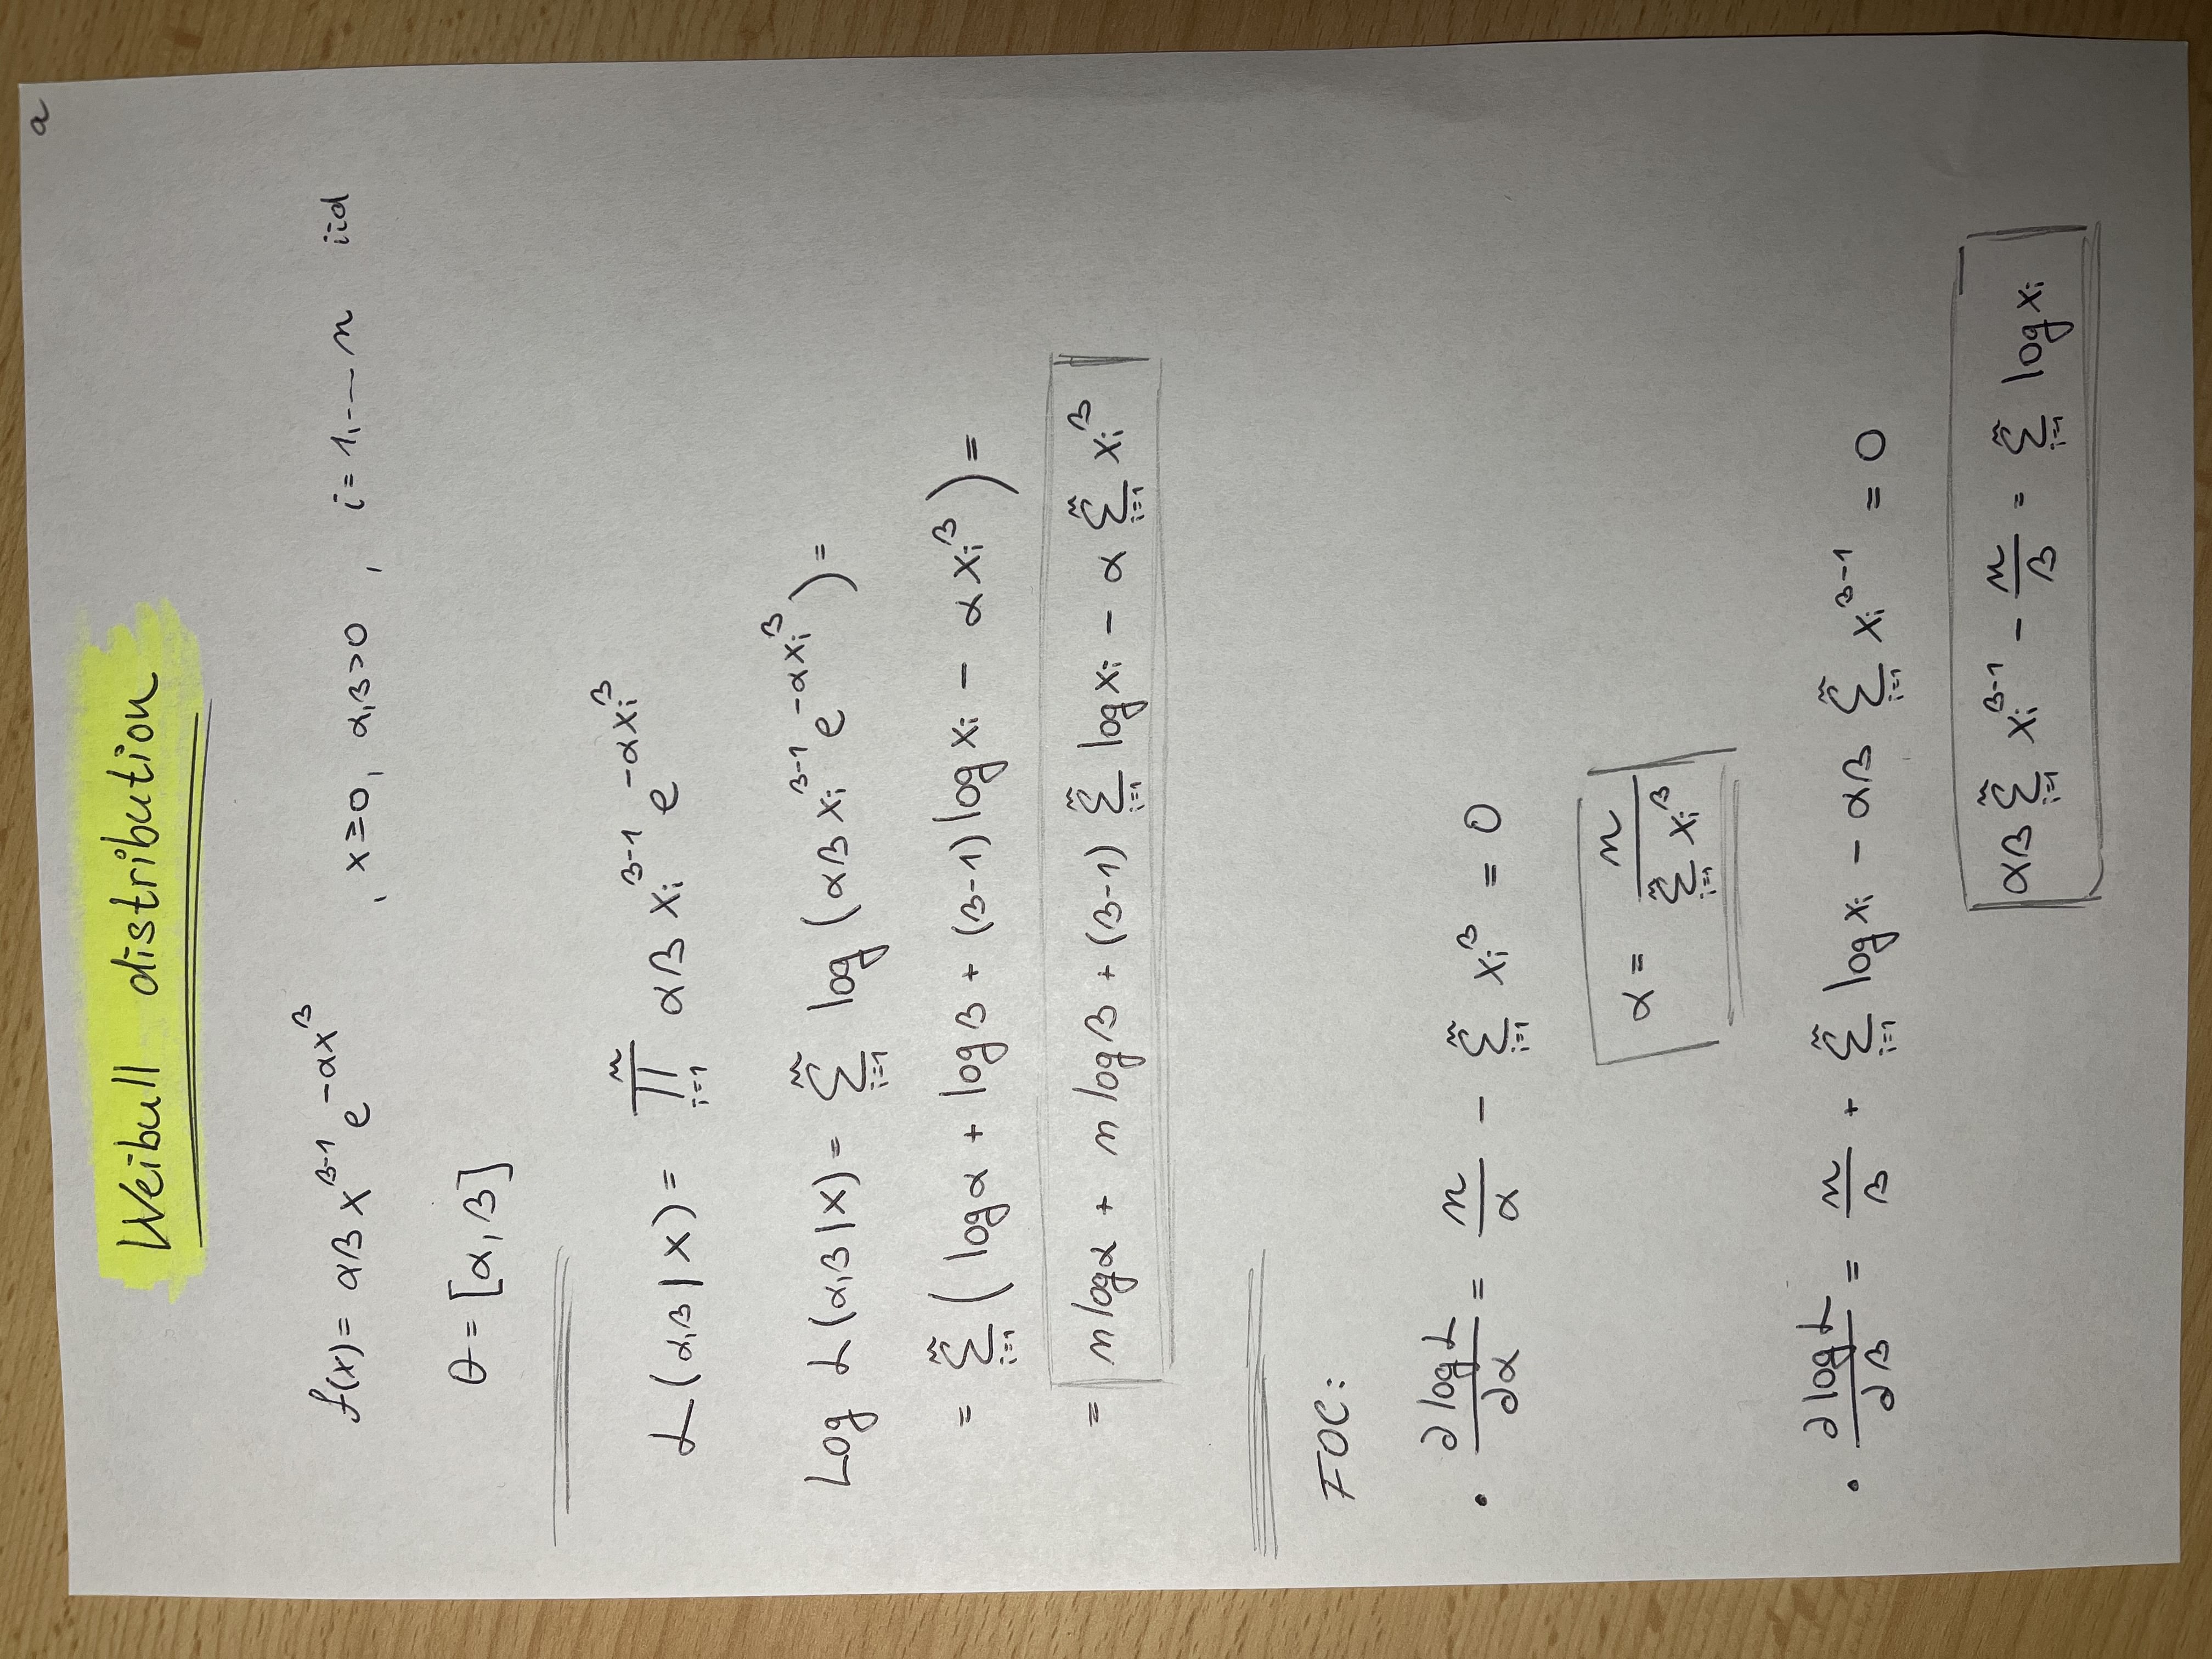 a
Weibull distribution
f(x) = αβ x^{β-1} e^{-αx^β} , x≥0, α,β>0 , i = 1, ... n iid
θ = [α, β]
L(α,β | X) = ∏_{i=1}^{n} αβ x_i^{β-1} e^{-αx_i^β}
Log L(α,β | X) = Σ_{i=1}^{n} log (αβ x_i^{β-1} e^{-αx_i^β}) =
= Σ_{i=1}^{n} ( log α + log β + (β-1) log x_i - α x_i^β ) =
= n log α + n log β + (β-1) Σ_{i=1}^{n} log x_i - α Σ_{i=1}^{n} x_i^β
FOC:
• ∂ log L / ∂α = n/α - Σ_{i=1}^{n} x_i^β = 0
α = n / Σ_{i=1}^{n} x_i^β
• ∂ log L / ∂β = n/β + Σ_{i=1}^{n} log x_i - αβ Σ_{i=1}^{n} x_i^{β-1} = 0
αβ Σ_{i=1}^{n} x_i^{β-1} - n/β = Σ_{i=1}^{n} log x_i